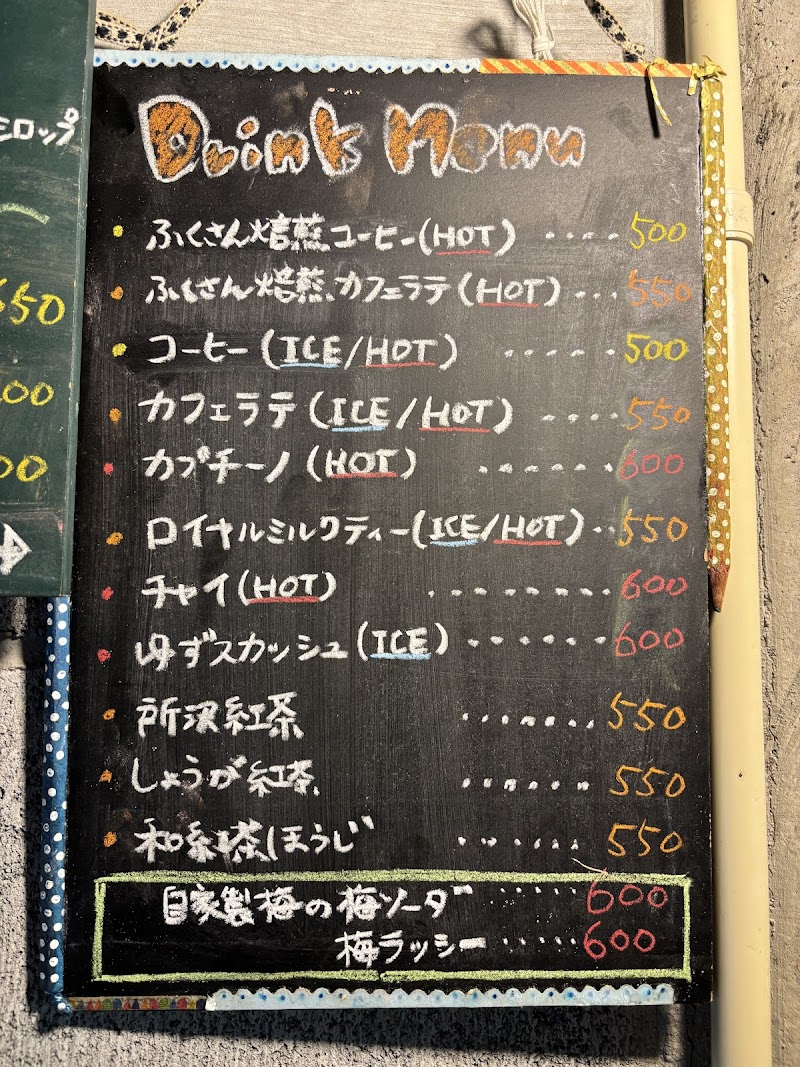 ミロップ
650
00
00
Drink Menu
ふくさん焙煎コーヒー(HOT) ····· 500
ふくさん焙煎カフェラテ(HOT) ··· 550
コーヒー(ICE/HOT) ······ 500
カフェラテ(ICE/HOT) ····· 550
カプチーノ(HOT) ······· 600
ロイヤルミルクティー(ICE/HOT) ·· 550
チャイ(HOT) ········· 600
ゆずスカッシュ(ICE) ······· 600
所沢紅茶 ······· 550
しょうが紅茶 ······· 550
和紅茶ほうじ ······· 550
自家製梅の梅ソーダ ······ 600
梅ラッシー ····· 600